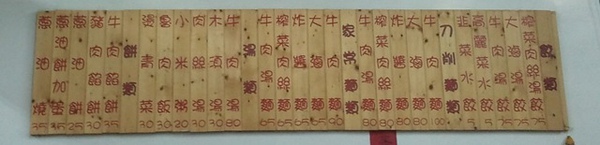 餃類
榨菜肉絲湯餃 75
大滷湯餃 75
牛肉湯餃 75
高麗菜水餃 5
韭菜水餃 5
刀削麵類
牛肉麵 100
大滷麵 80
炸醬麵 80
榨菜肉絲麵 80
牛肉湯麵 80
家常麵類
牛肉麵 90
大滷麵 65
炸醬麵 65
榨菜肉絲麵 65
牛肉湯麵 65
湯類
牛肉湯 80
湯 30
肉絲湯 30
小米粥 20
30
滷菜 30
餅類
牛肉餡餅 35
豬肉餡餅 30
蔥油餅 25
蔥油餅加蛋 35
35